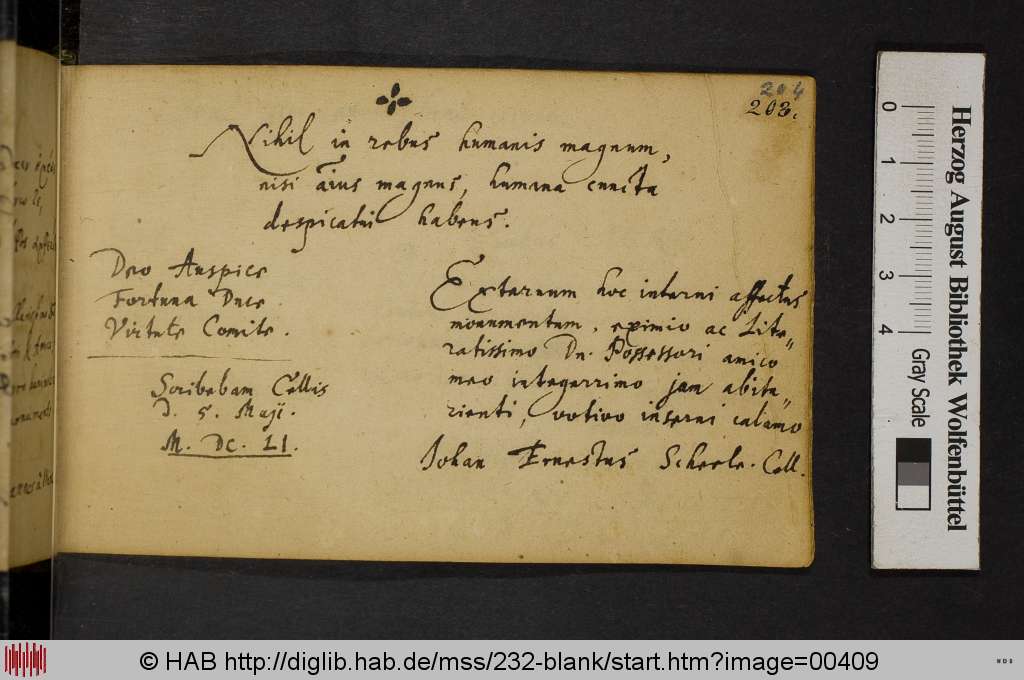 204
203.
Nihil in rebus humanis magnum,
nisi āius magnus, humana cuncta
despicatui habens.
Deo Auspice
Fortuna Duce
Virtute Comite.
Scribebam Cellis
d. 5. Maji.
M. DC. LI.
Externum hoc interni affectus
monumentum, eximio ac Lite„
ratissimo Dn. Possessori amico
meo integerrimo jam abitu„
rienti, votivo inserui calamo
Johan Ernestus Scheele. Cell.
0 1 2 3 4
Gray Scale
Herzog August Bibliothek Wolfenbüttel
© HAB http://diglib.hab.de/mss/232-blank/start.htm?image=00409